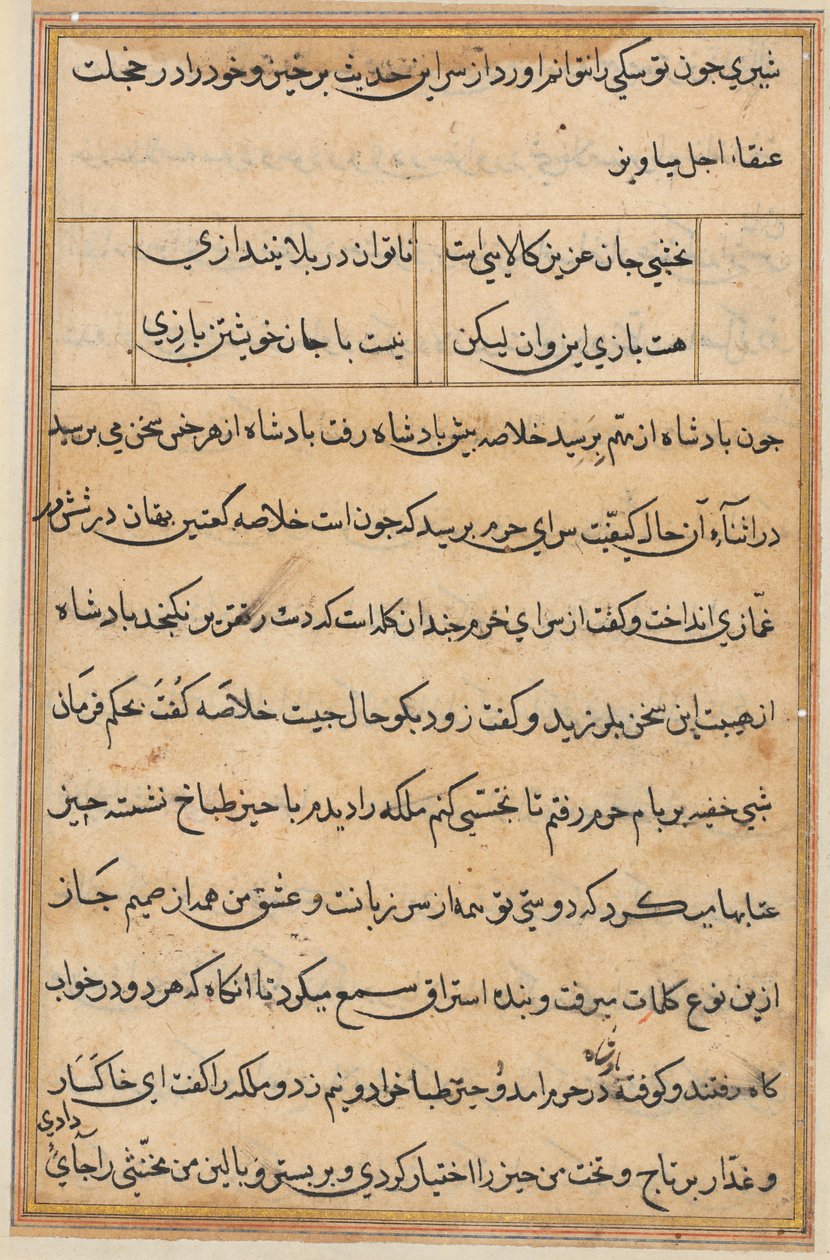 شیری جون تو سکی را نتوانم اورد از سر این حدیث برخیز و خود را در خجلت
عنقاء اجل میاویز
نخشبی جان عزیز کالایی است
ناتوان در بلا نیندازی
هست بازی این وان لیکن
نیست با جان خویشتن بازِی
جون بادشاه از مهّم بِرَسید خلاصه بیش بادشاه رفت بادشاه از هر جنس سخن می برسید
در اثنآءِ آن حال کیفیّت سرای حرم برسید که جون است خلاصه کعتین بهتان در شش در
غمّازی انداخت و کفت از سرای خرم جندان کله است که دست تقریر نکنجد بادشاه
از هیبت این سخن بلرزید و کفت زود بکو حال جیست خلاصَه کُفتَ بحکم فرمَان
شبی خفیه بر بام حرم رفتم تا تجسّسی کنم ملکه را دیدم با حیز طباخ نشسته حیز
عتابها میکرد که دوستی تو همه از سر زبانست و عشق من همه از صمیم جَان
ازین نوع کلمات میرفت و بنده استراق سمع میکرد تا انکاه که هر دو در خواب
کاه رفتند و کوفته بادشاه در حرم امد و حیز طباخ را دو نیم زد و ملکه را کفت ای خاکسَار
و غدّار بر تاج و تخت من حیز را اختیار کردی و بر بستر و بالین من مخنّثی را جآی دادی